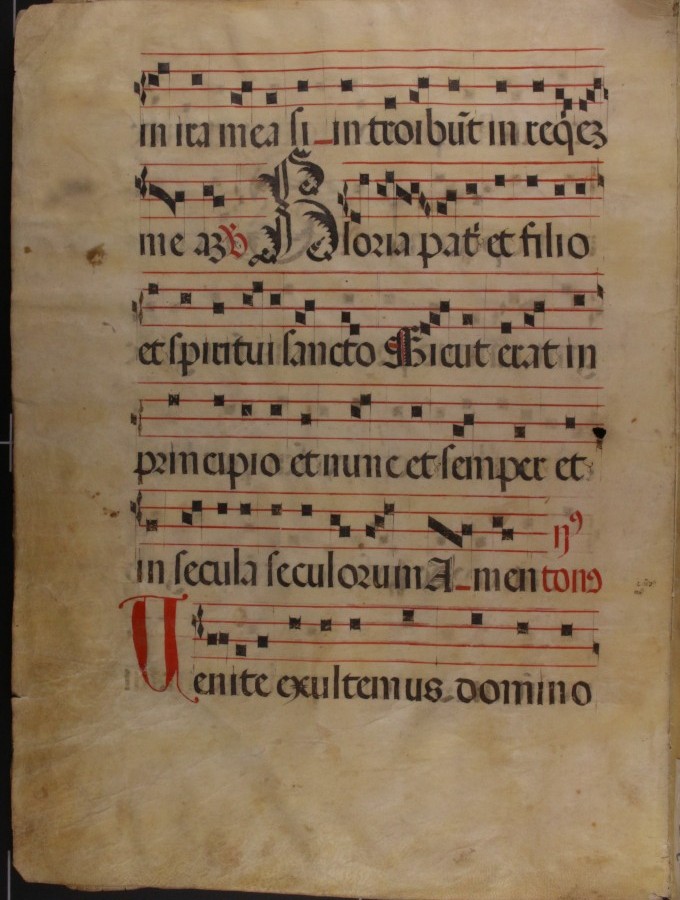 in ira mea si in troibut̄ in reqēz
me aʒ ꝶ Gloria pat̄ et filio
et spiritui sancto Sicut erat in
principio et nunc et semper et
in secula seculorum A men
ij⁹ tonꝰ
Venite exultemus domino